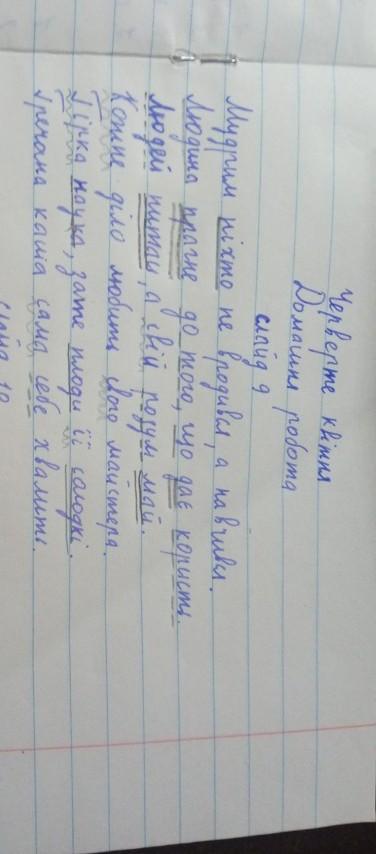 Черверте квітня
Домашня робота
слайд 9
Мудрим ніхто не вродився, а навчився.
Людина прагне до того, що дає користь.
Людей питай, а свій розум май.
Кожне діло любить свого майстера.
Гірка наука, зате плоди її солодкі.
Гречана каша сама себе хвалить.
слайд 10